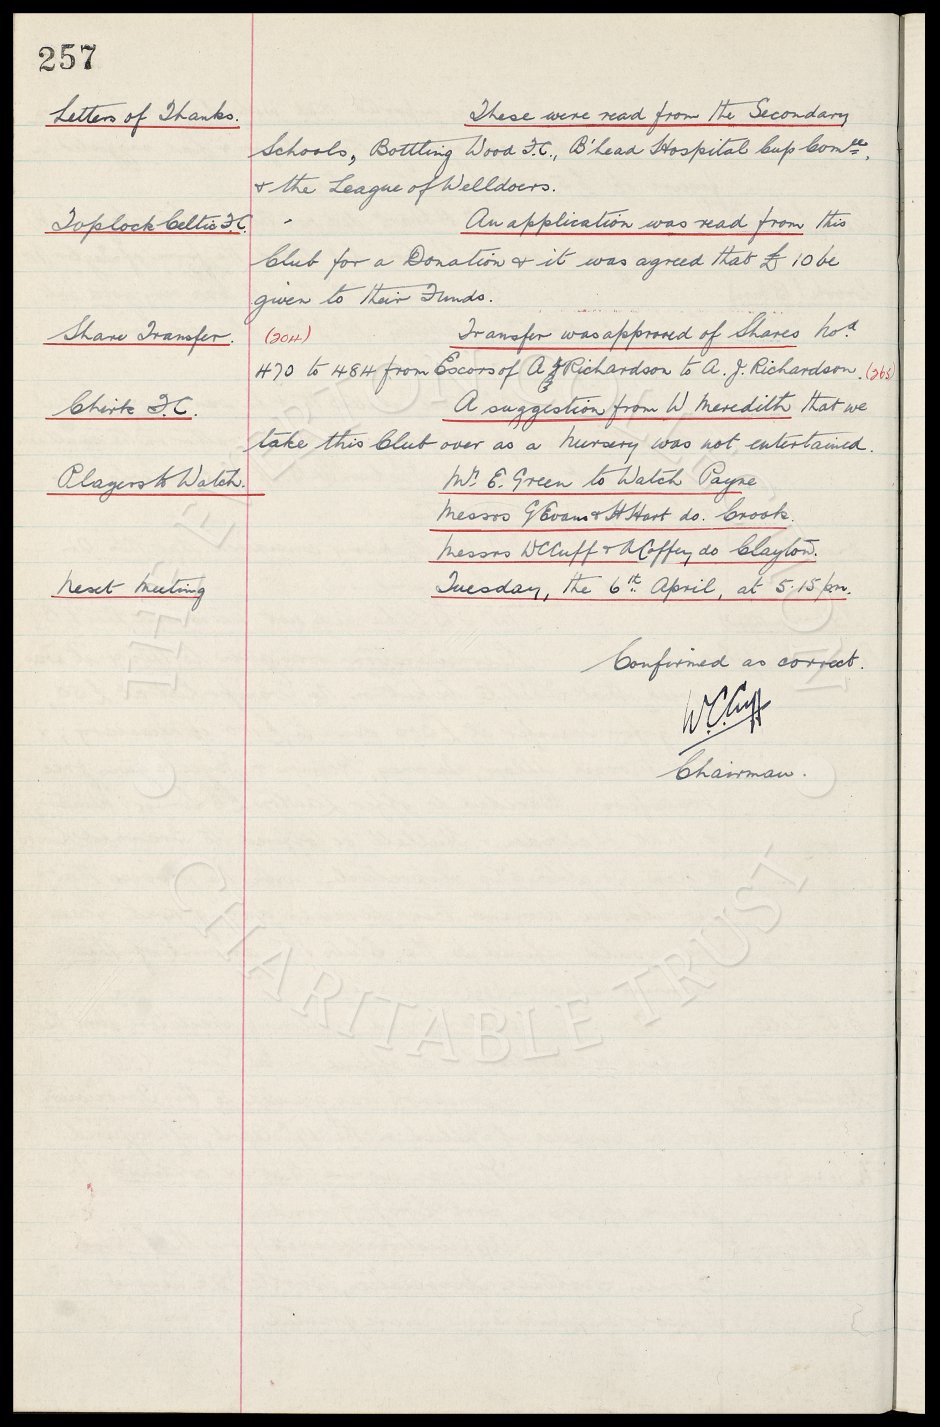 257
Letters of Thanks. These were read from the Secondary
Schools, Bottling Wood F.C., B'head Hospital Cup Comtee,
& the League of Welldoers.
Toplock Celtic F.C. An application was read from this
Club for a Donation & it was agreed that £10 be
given to their Funds.
Share Transfer. (204) Transfer was approved of Shares Nod
470 to 484 from Excors of A J Richardson to A. J. Richardson. (265)
Chirk F.C. A suggestion from W. Meredith that we
take this Club over as a Nursery was not entertained.
Players to Watch. Mr. E. Green to Watch Payne
Messrs G Evans & H Hart do. Crook.
Messrs W C Cuff & A Coffey do Clayton.
Next Meeting Tuesday, the 6th April, at 5.15 pm.
Confirmed as correct.
W.C. Cuff
Chairman.
THE EVERTON COLLECTION
CHARITABLE TRUST